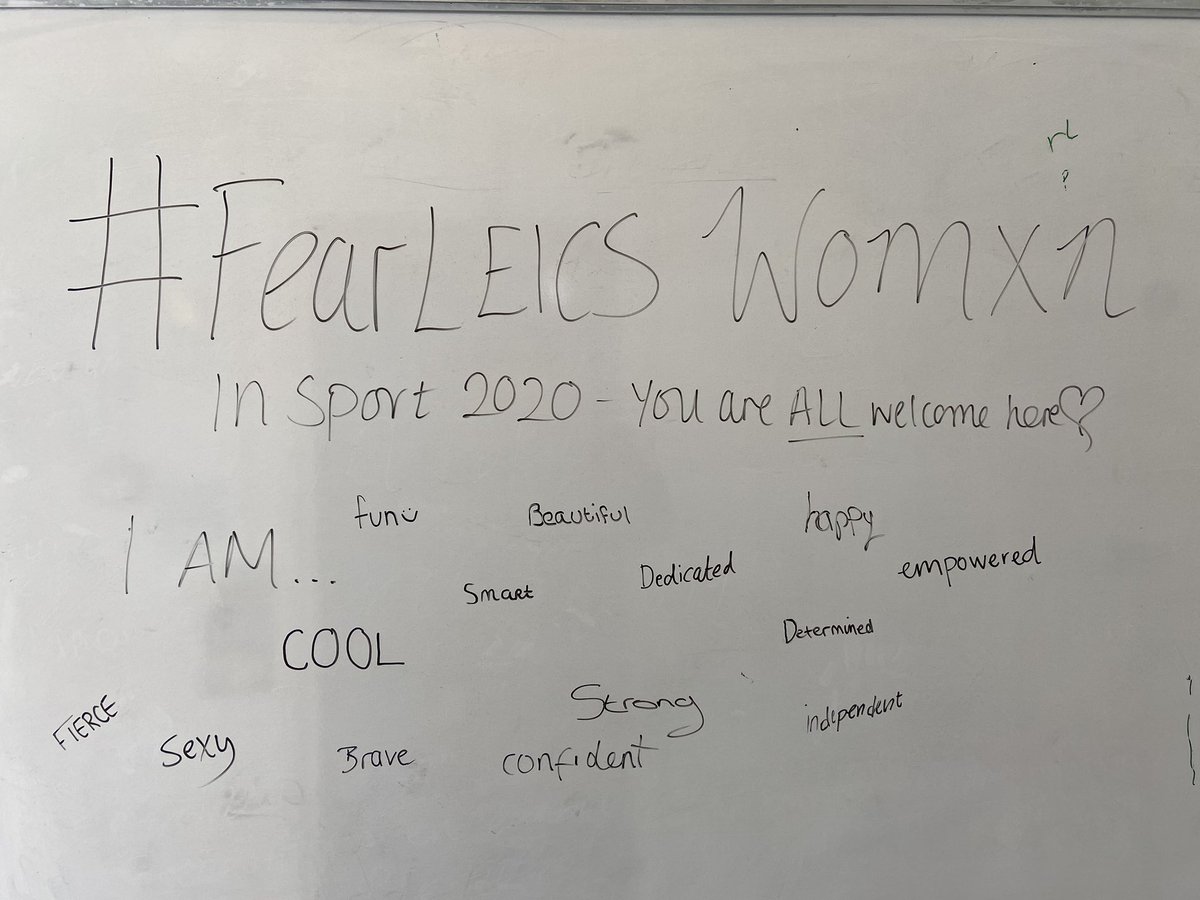 #FearLEICS Womxn
In Sport 2020 - You are ALL welcome here♡
I AM...
fun
Beautiful
happy
Smart
Dedicated
empowered
COOL
Determined
FIERCE
Sexy
Brave
Strong
confident
independent